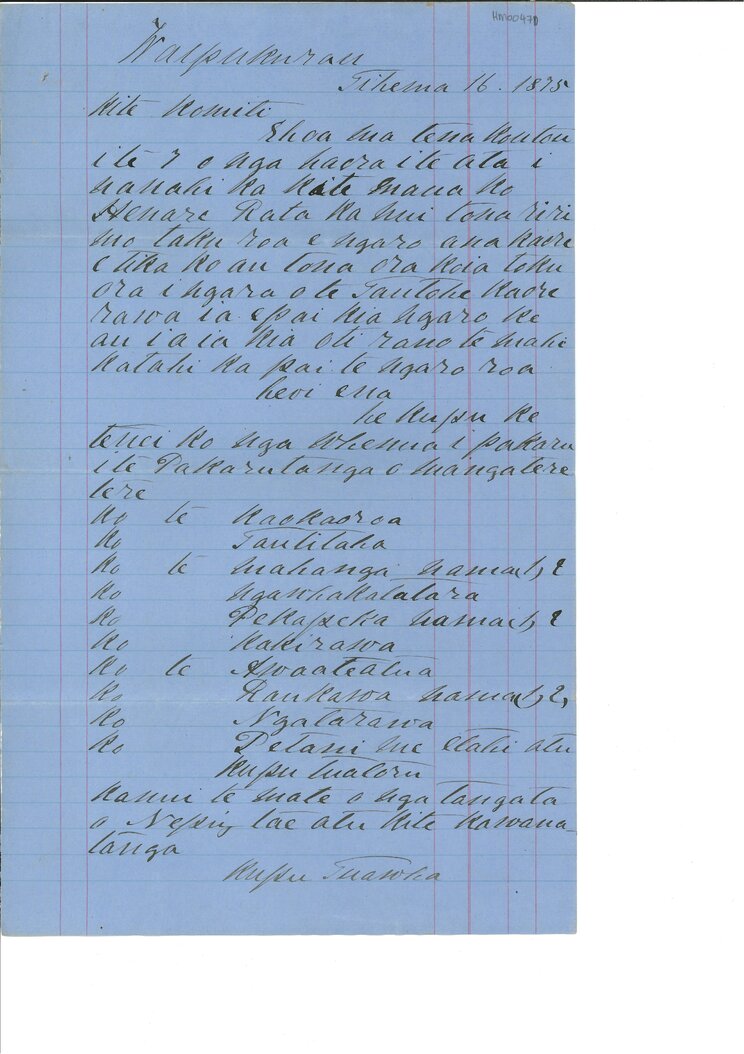 HM00471
Waipukurau
Tihema 16. 1875
kite komiti
Ehoa ma tena koutou
ite 7 o nga haora ite ata i
nanahi ka kite maua ko
Henare Rata ka nui tona riri
mo taku roa e ngaro ana kaore
e tika ko au tona ora koia toku
ora i ngaro o te Tautohe kaore
rawa ia e pai kia ngaro ke
au i a ia kia oti rano te mahi
katahi ka pai te ngaro roa
heoi ena
he kupu ke
tenei ko nga whenua i pakaru
ite Pakarutanga o mangatere
tere
ko te kaokaoroa
ko Tautitaha
ko te mahanga nama 1, 2
ko ngawhakatatara
ko Pekapeka nama 1, 2
ko kakirawa
ko te Awaateatua
ko Raukawa nama 1, 2,
ko Ngatarawa
ko Petani me etahi atu
kupu
kanui te mate o nga tangata
o Nepia tae atu kite kawana-
tanga
kupu